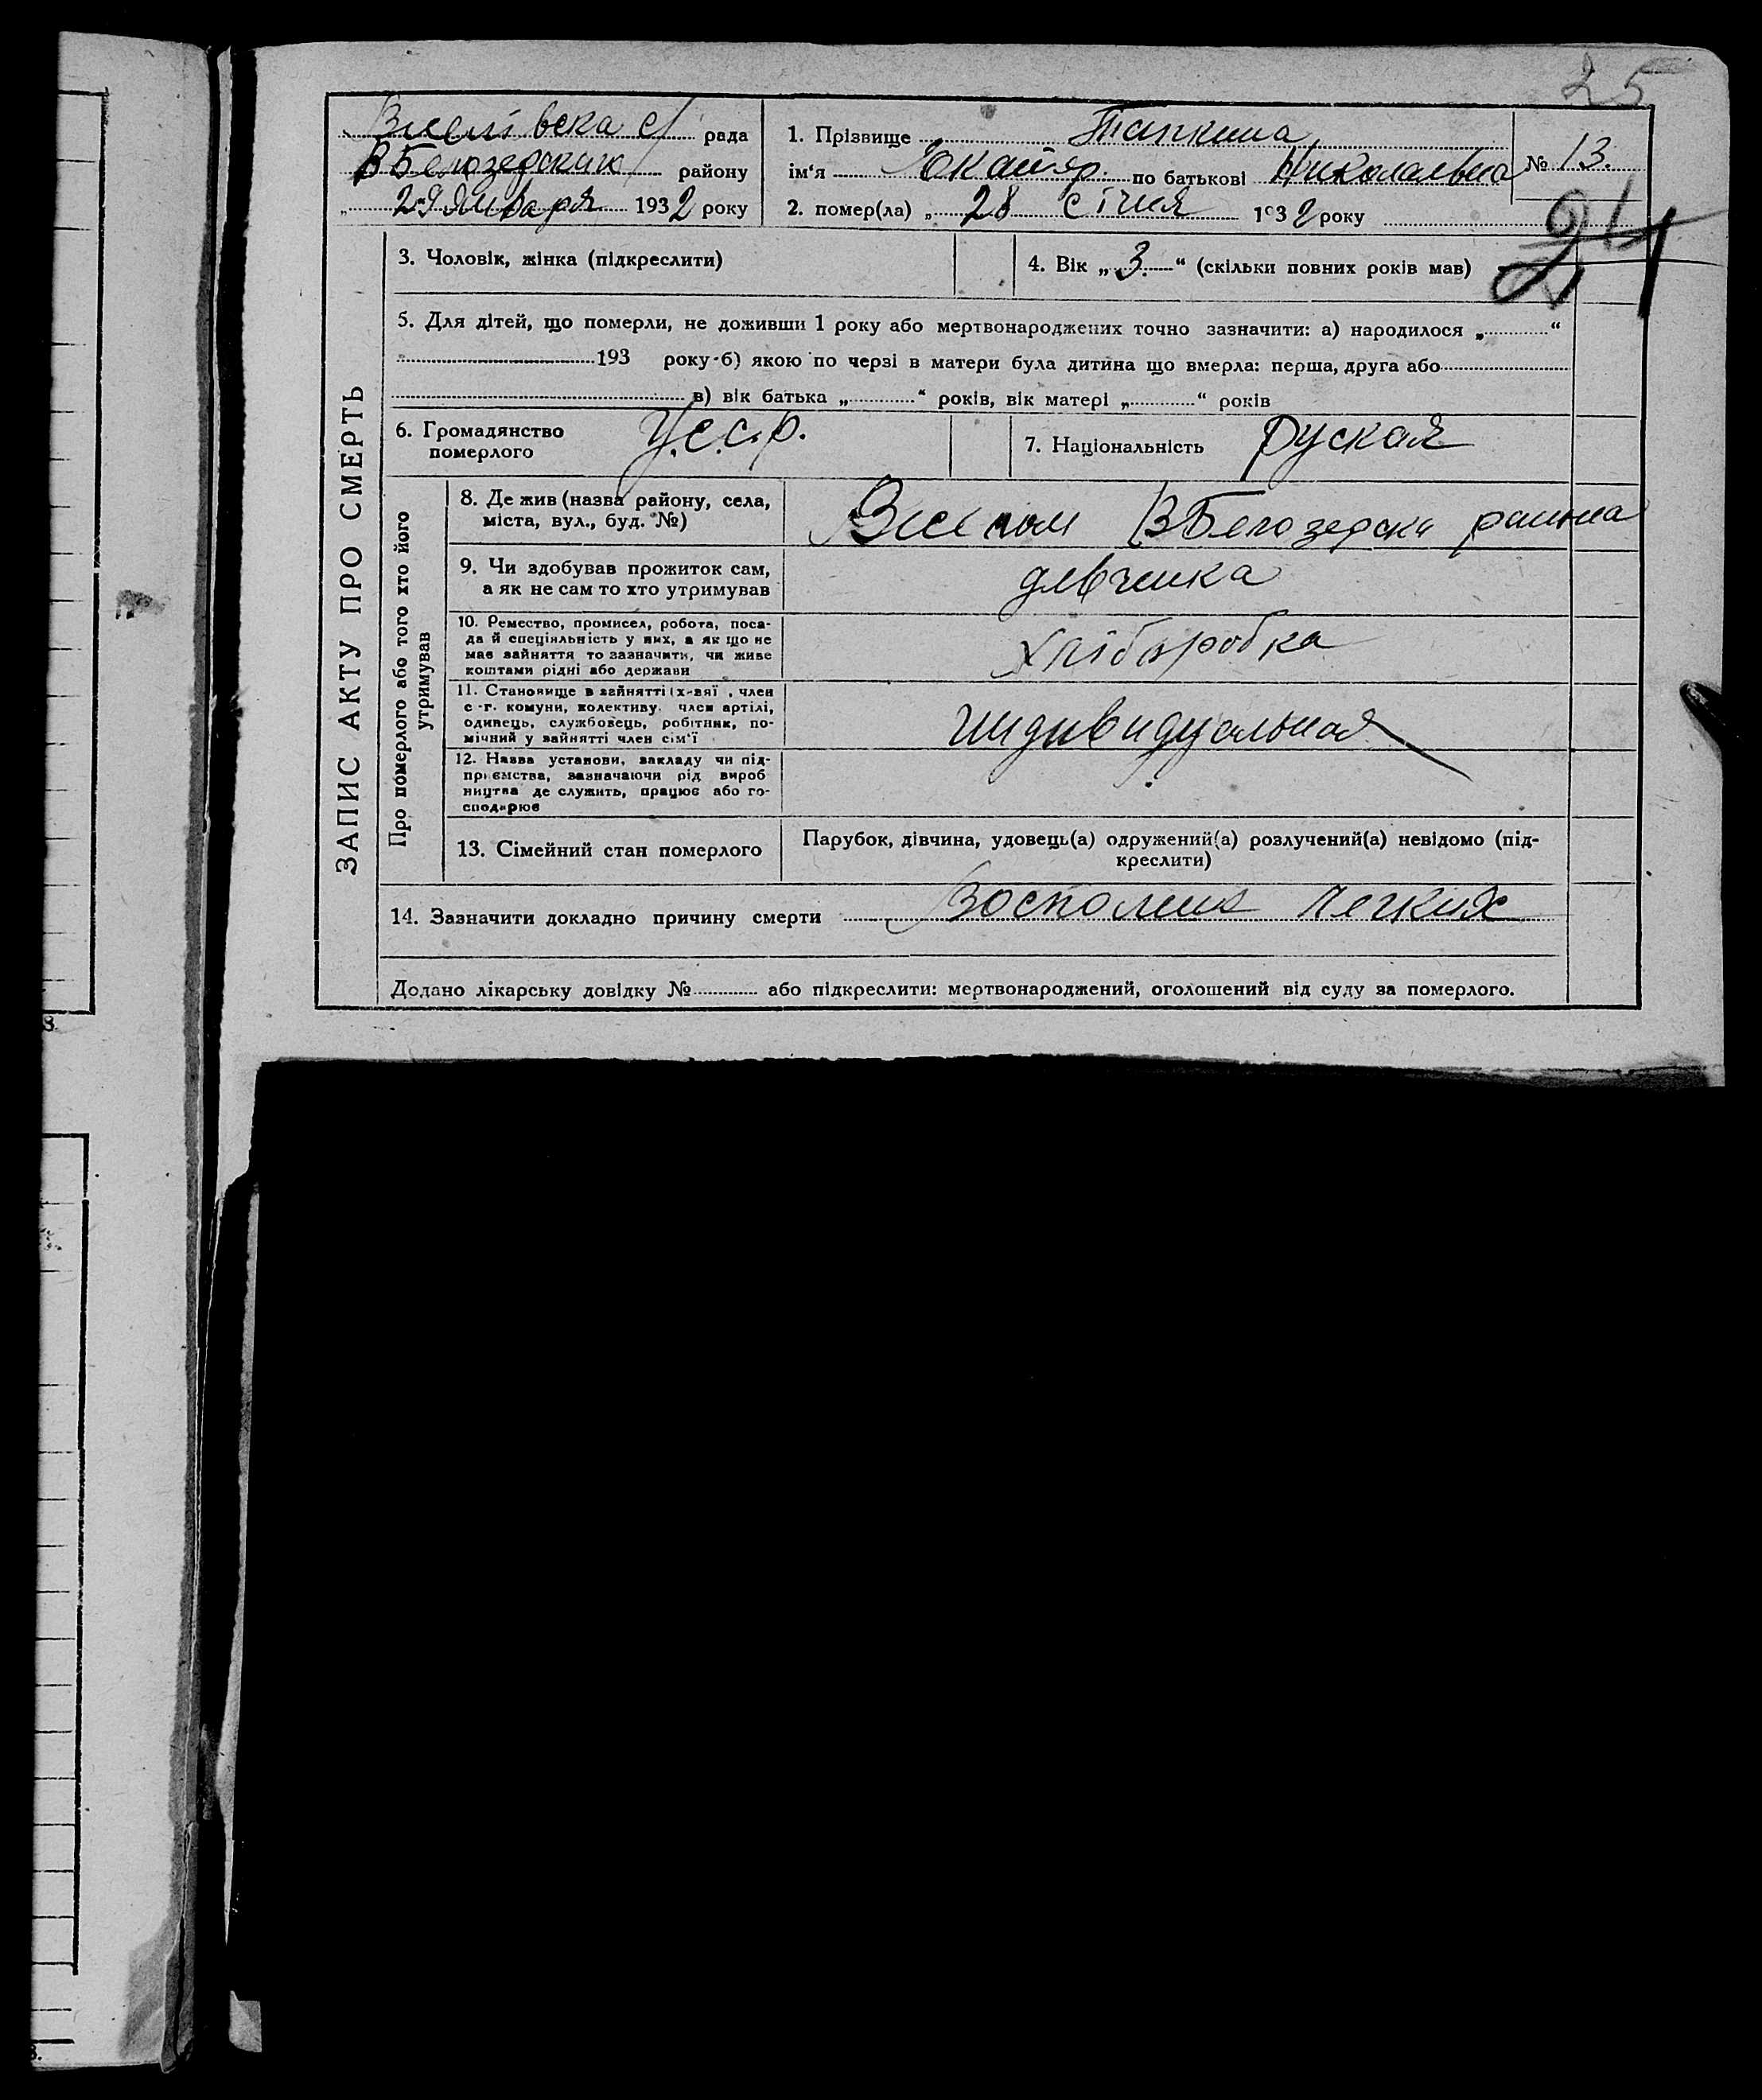 25
рада
В Белозерского району
29 Января 1932 року
1. Прізвище Тапкина
ім'я по батькові Николаевна
№ 13.
2. помер(ла) „ 28 січня 1932 року
24
ЗАПИС АКТУ ПРО СМЕРТЬ
3. Чоловік, жінка (підкреслити)
4. Вік „ 3. “ (скільки повних років мав)
5. Для дітей, що померли, не доживши 1 року або мертвонароджених точно зазначити: а) народилося „ “
193 року б) якою по черзі в матери була дитина що вмерла: перша, друга або
в) вік батька „ “ років, вік матері „ “ років
6. Громадянство
померлого
У.С.С.Р.
7. Національність Руская
Про померлого або того хто його
утримував
8. Де жив (назва району, села,
міста, вул., буд. №)
В Белозерска раиона
9. Чи здобував прожиток сам,
а як не сам то хто утримував
девченка
10. Ремество, промисел, робота, поса-
да й спеціяльність у них, а як що не
має зайняття то зазначити, чи живе
коштами рідні або держави
хлібаробка
11. Становище в зайнятті (х-вяї , член
с-г. комуни, колективу, член артілі,
одинець, службовець, робітник, по-
мічний у зайнятті член сім'ї
индивидуальная
12. Назва установи, закладу чи під-
приємства, зазначаючи рід вироб
ництва де служить, працює або го-
сподарює
13. Сімейний стан померлого
Парубок, дівчина, удовець(а) одружений(а) розлучений(а) невідомо (під-
креслити)
14. Зазначити докладно причину смерти Восполения легких
Додано лікарську довідку № або підкреслити: мертвонароджений, оголошений від суду за померлого.